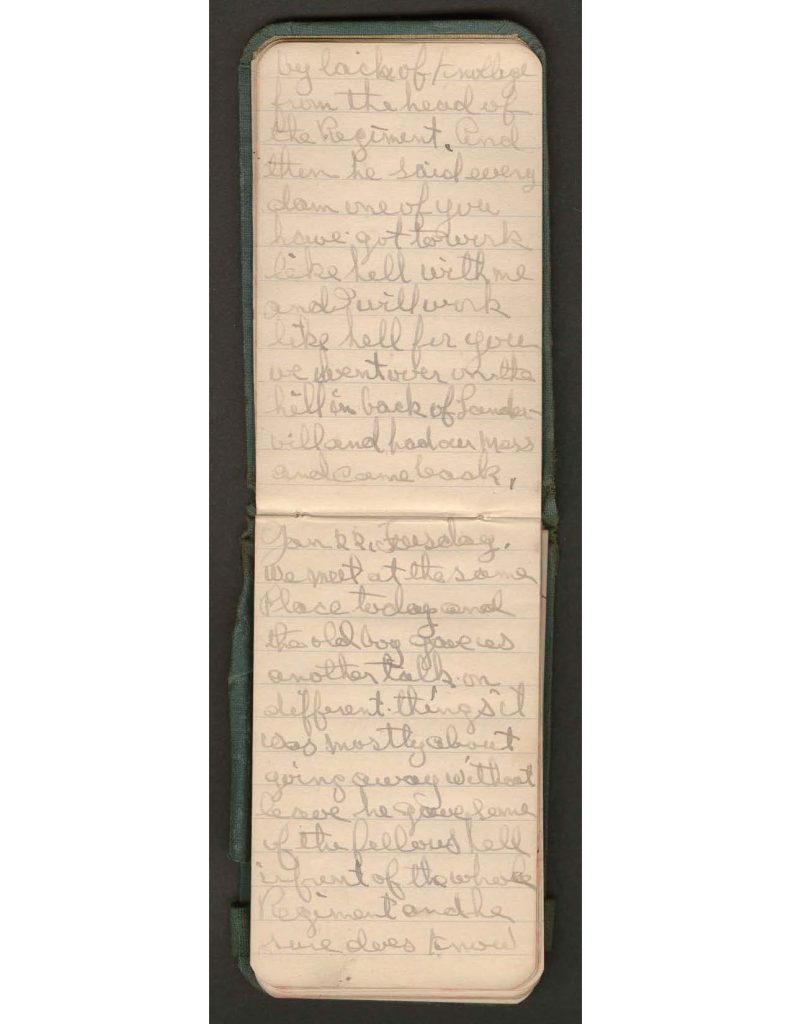 by lack of knollege
from the head of
the Regiment. And
then he said every
dam one of you
have got to work
like hell with me
and I will work
like hell for you
we went over on the
hill in back of Lander-
vill and had our mess
and came back.
Jan 22, Tuesday.
We meet at the same
Place today and
the old boy gave us
another talk on
different things it
was mostly about
going away without
leave he gave some
of the fellows hell
infront of the whole
Regiment and he
sure does know